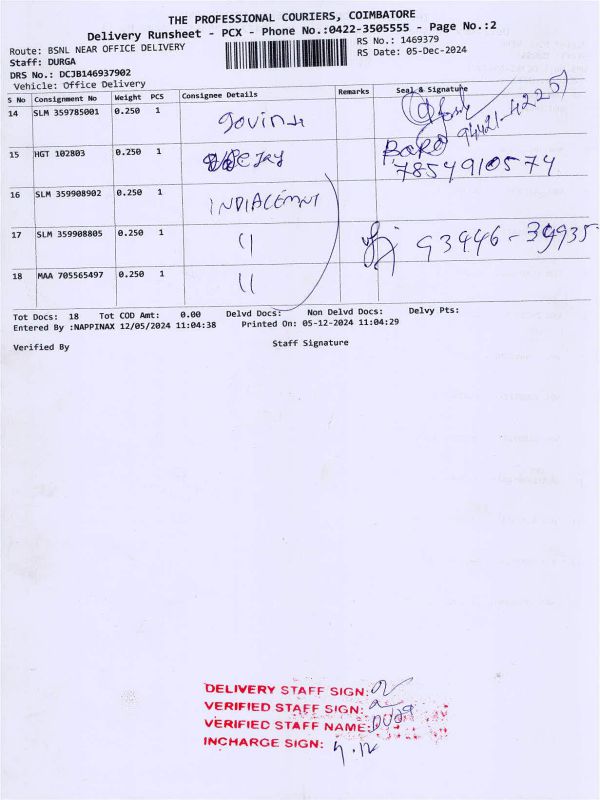 THE PROFESSIONAL COURIERS, COIMBATORE
Delivery Runsheet - PCX - Phone No.:0422-3505555 - Page No.:2
Route: BSNL NEAR OFFICE DELIVERY
RS No.: 1469379
Staff: DURGA
RS Date: 05-Dec-2024
DRS No.: DCJB146937902
Vehicle: Office Delivery
S No Consignment No Weight PCS Consignee Details Remarks Seal & Signature
14 SLM 359785001 0.250 1 94421-42251
15 HGT 102803 0.250 1 7854910574
16 SLM 359908902 0.250 1 INDIACEMNT
17 SLM 359908805 0.250 1 " 93446-39935
18 MAA 705565497 0.250 1 "
Tot Docs: 18 Tot COD Amt: 0.00 Delvd Docs: Non Delvd Docs: Delvy Pts:
Entered By :NAPPINAX 12/05/2024 11:04:38 Printed On: 05-12-2024 11:04:29
Verified By Staff Signature
DELIVERY STAFF SIGN:
VERIFIED STAFF SIGN:
VERIFIED STAFF NAME:
INCHARGE SIGN: